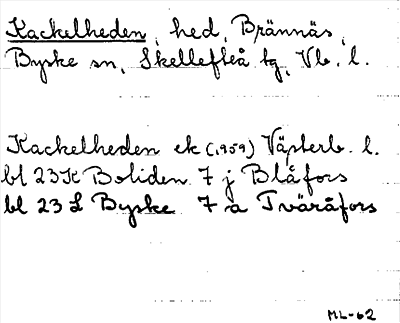 Kackelheden, hed, Brännäs,
Byske sn, Skellefteå tg, Vb. l.
Kackelheden ek (1959) Västerb. l.
bl 23 K Boliden 7 j Blåfors
bl 23 L Byske 7 a Tväråfors
ML-62